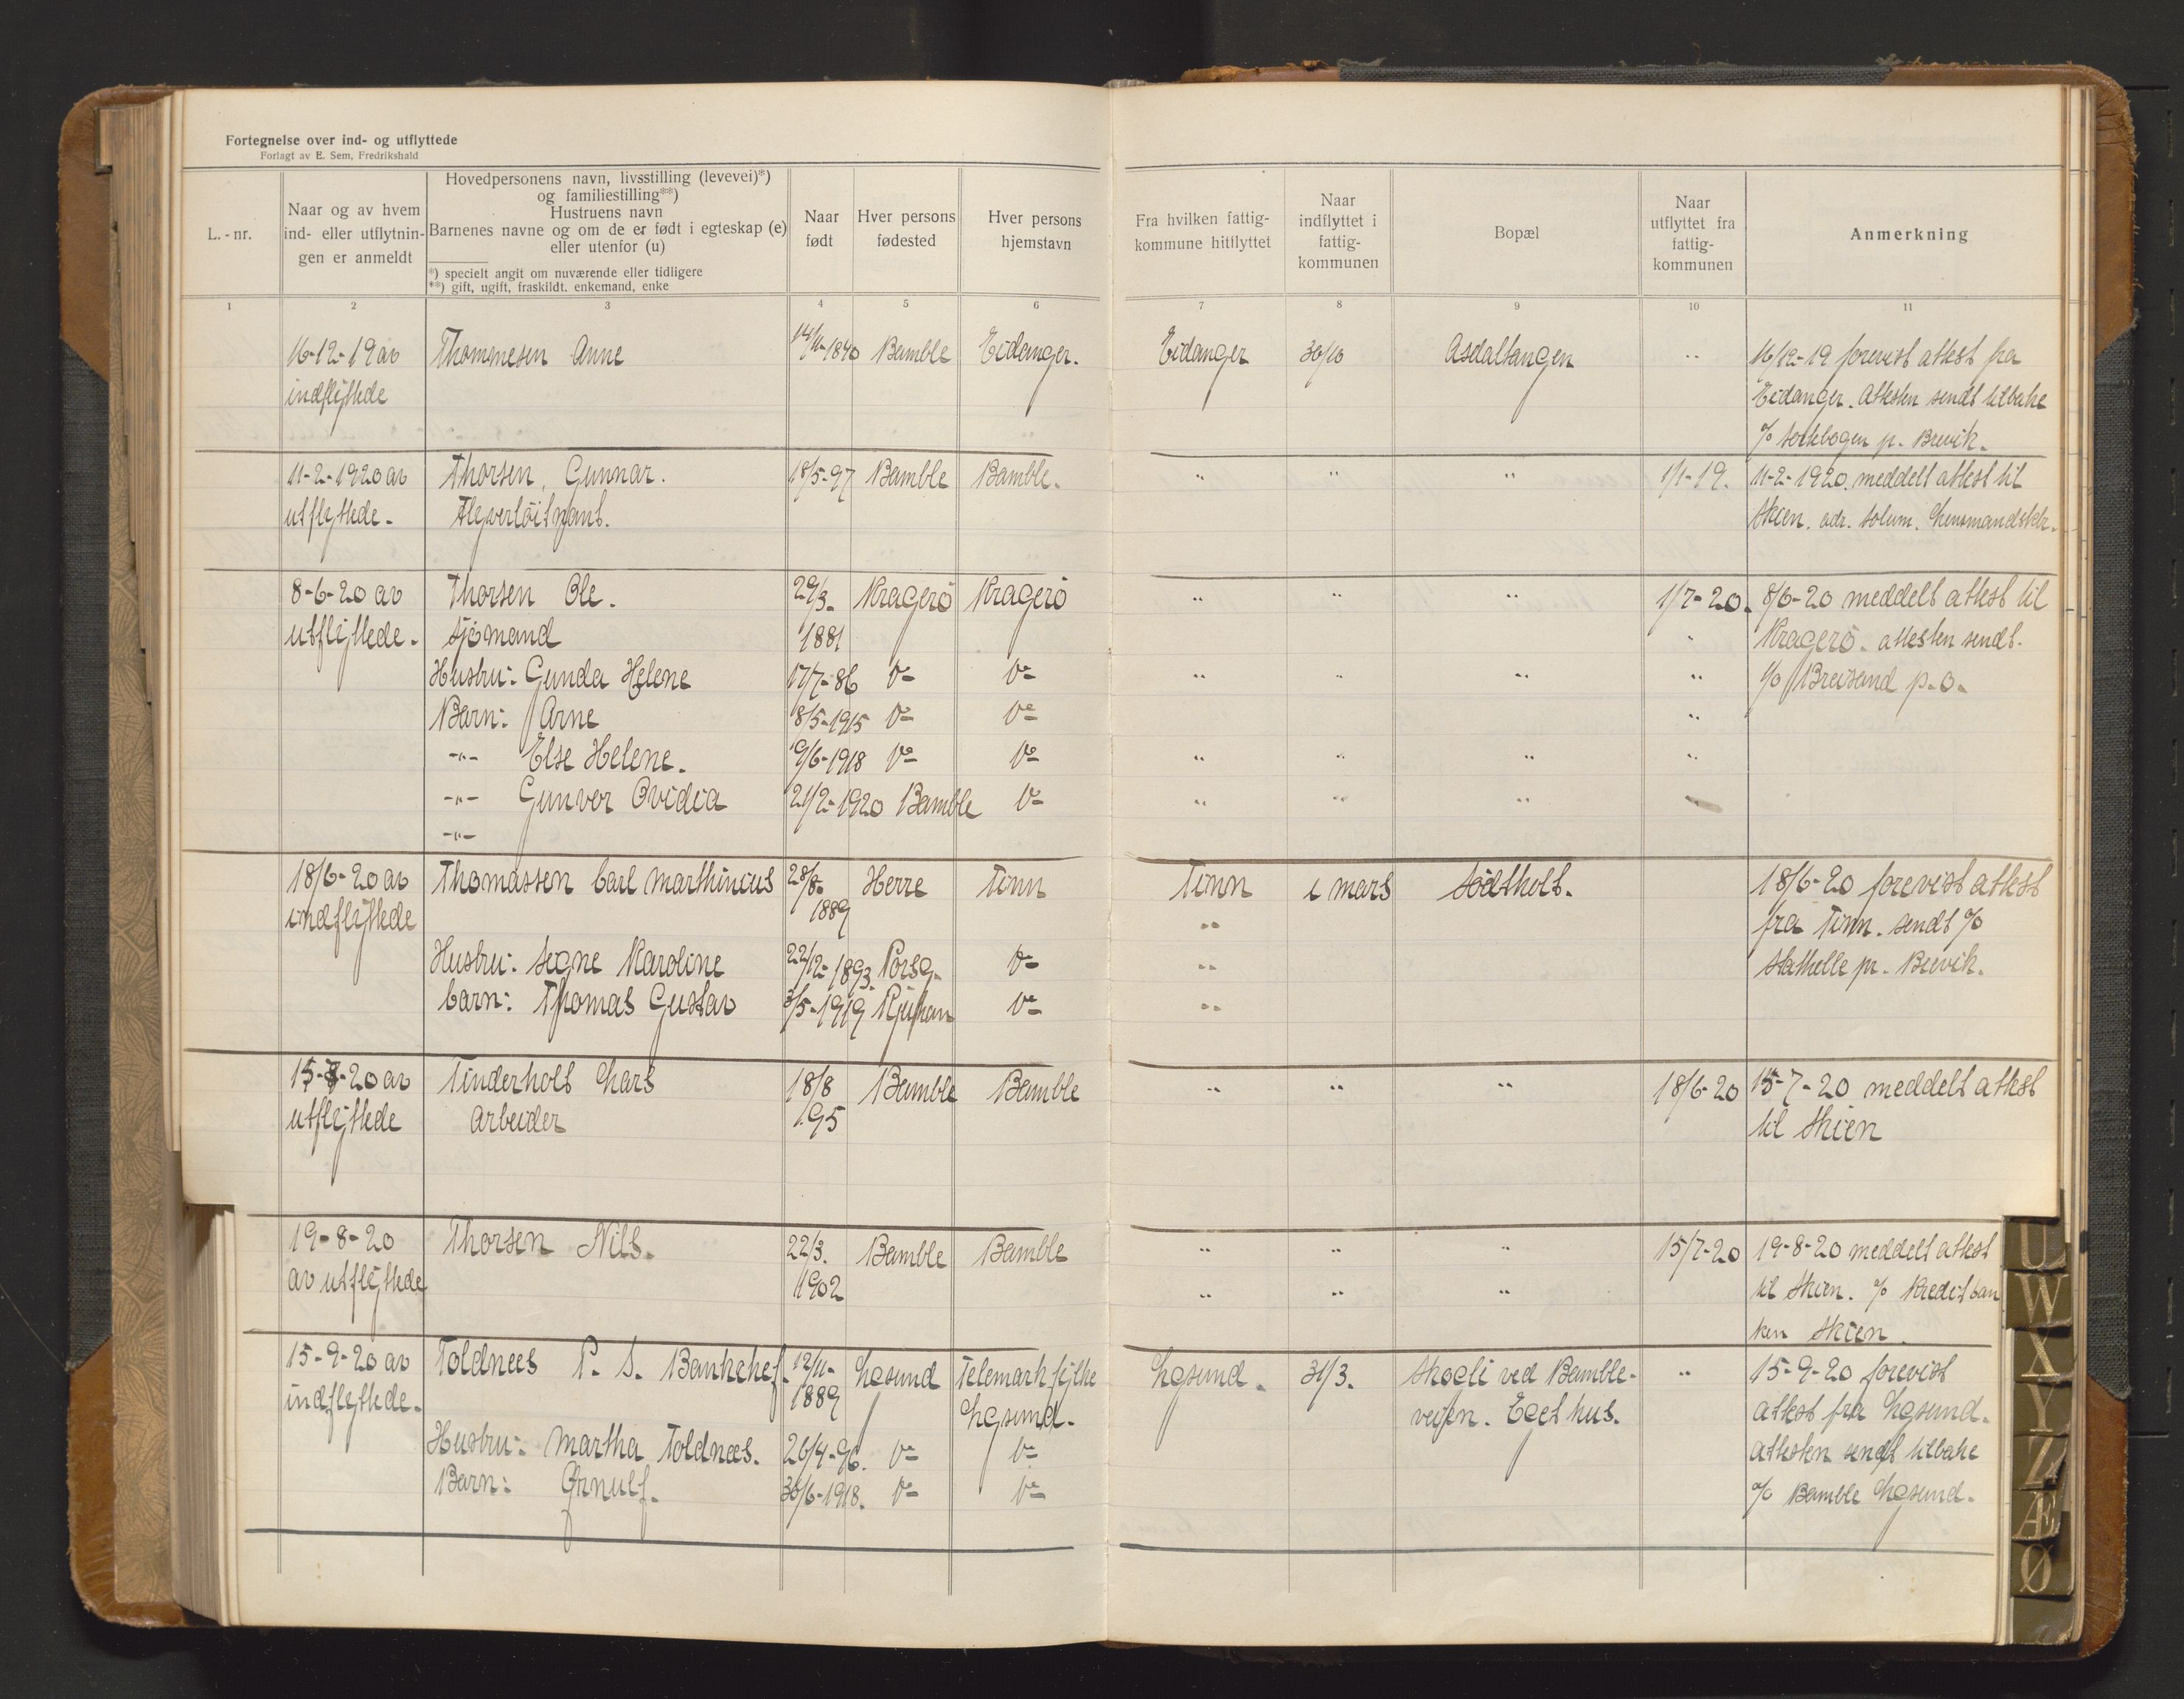 Fortegnelse over ind- og utflyttede
Forlagt av E. Sem, Fredrikshald
L.-nr.
Naar og av hvem
ind- eller utflytnin-
gen er anmeldt
Hovedpersonens navn, livsstilling (levevei)*)
og familiestilling**)
Hustruens navn
Barnenes navne og om de er født i egteskap (e)
eller utenfor (u)
*) specielt angit om nuværende eller tidligere
**) gift, ugift, fraskildt. enkemand, enke
Naar
født
Hver persons
fødested
Hver persons
hjemstavn
Fra hvilken fattig-
kommune hitflyttet
Naar
indflyttet i
fattig-
kommunen
Bopæl
Naar
utflyttet fra
fattig-
kommunen
Anmerkning
1 2 3 4 5 6 7 8 9 10 11
16-12-19 av Thommesen Anne 1840 Bamble Eidanger. Eidanger 30/10 Asdaltangen " 16/12-19 forevist attest fra
indflyttede Eidanger. Attesten sendt tilbake
% p. Brevik.
11-2-1920 av Thorsen, Gunnar. 18/5-97 Bamble Bamble. " " " 1/1-19. 11-2-1920. meddelt attest til
utflyttede. Flyverløitnant. Skien. adr. Solum. Lensmandsktr.
8-6-20 av Thorsen Ole. 29/3. Kragerö Kragerö " " " 1/7-20. 8/6-20 meddelt attest til
utflyttede. sjömand 1881 " Kragerö. attesten sendt.
Hustru: Gunda Helene 17/7-86 do do " " " " % Brevsund p.o.
Barn: Arne 8/5-1915 do do "
-"- Else Helene. 9/6-1918 do do " " " "
-"- Gunvor Ovidia 21/2-1920 Bamble do " " "
-"-
18/6-20 av Thomassen Carl Marthinius 28/8. Herre Tinn Tinn i mars Södtholt. 18/6-20 forevist attest
indflyttede 1889 " fra Tinn. sendt %
Hustru: Signe Karoline 22/12-1893. Porsg. do " Stathelle pr. Brevik.
barn: Thomas Gustav 3/5-1919 Rjukan do "
15-7-20 av Tinderholt Lars 18/8 Bamble Bamble " " " 18/6-20 15-7-20 meddelt attest
utflyttede Arbeider 195 til Skien
19-8-20 Thorsen Nils. 22/3. Bamble Bamble " " " 15/7-20 19-8-20 meddelt attest
av utflyttede 1902 " " " til Skien. % Kreditban
ken Skien.
15-9-20 av Toldnees P. S. Bankchef. 12/11- Lgsund Telemark fylke Lgsund. 31/3. Skogli ved Bamble- " 15-9-20 forevist
indflyttede. 1889 Lgsund. veien. Eget hus. attest fra Lgsund.
Hustru: Martha Toldnees. 26/4-96. do do Attesten sendt tilbake
Barn: Ørnulf. 30/6-1918. do do % Bamble Lgsund.
U
W
X
Y
Z
Æ
Ø